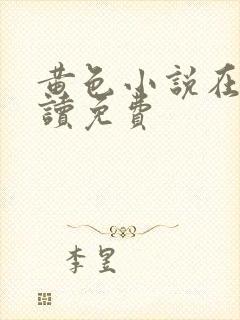 黄色小説在
讀免費
李昱